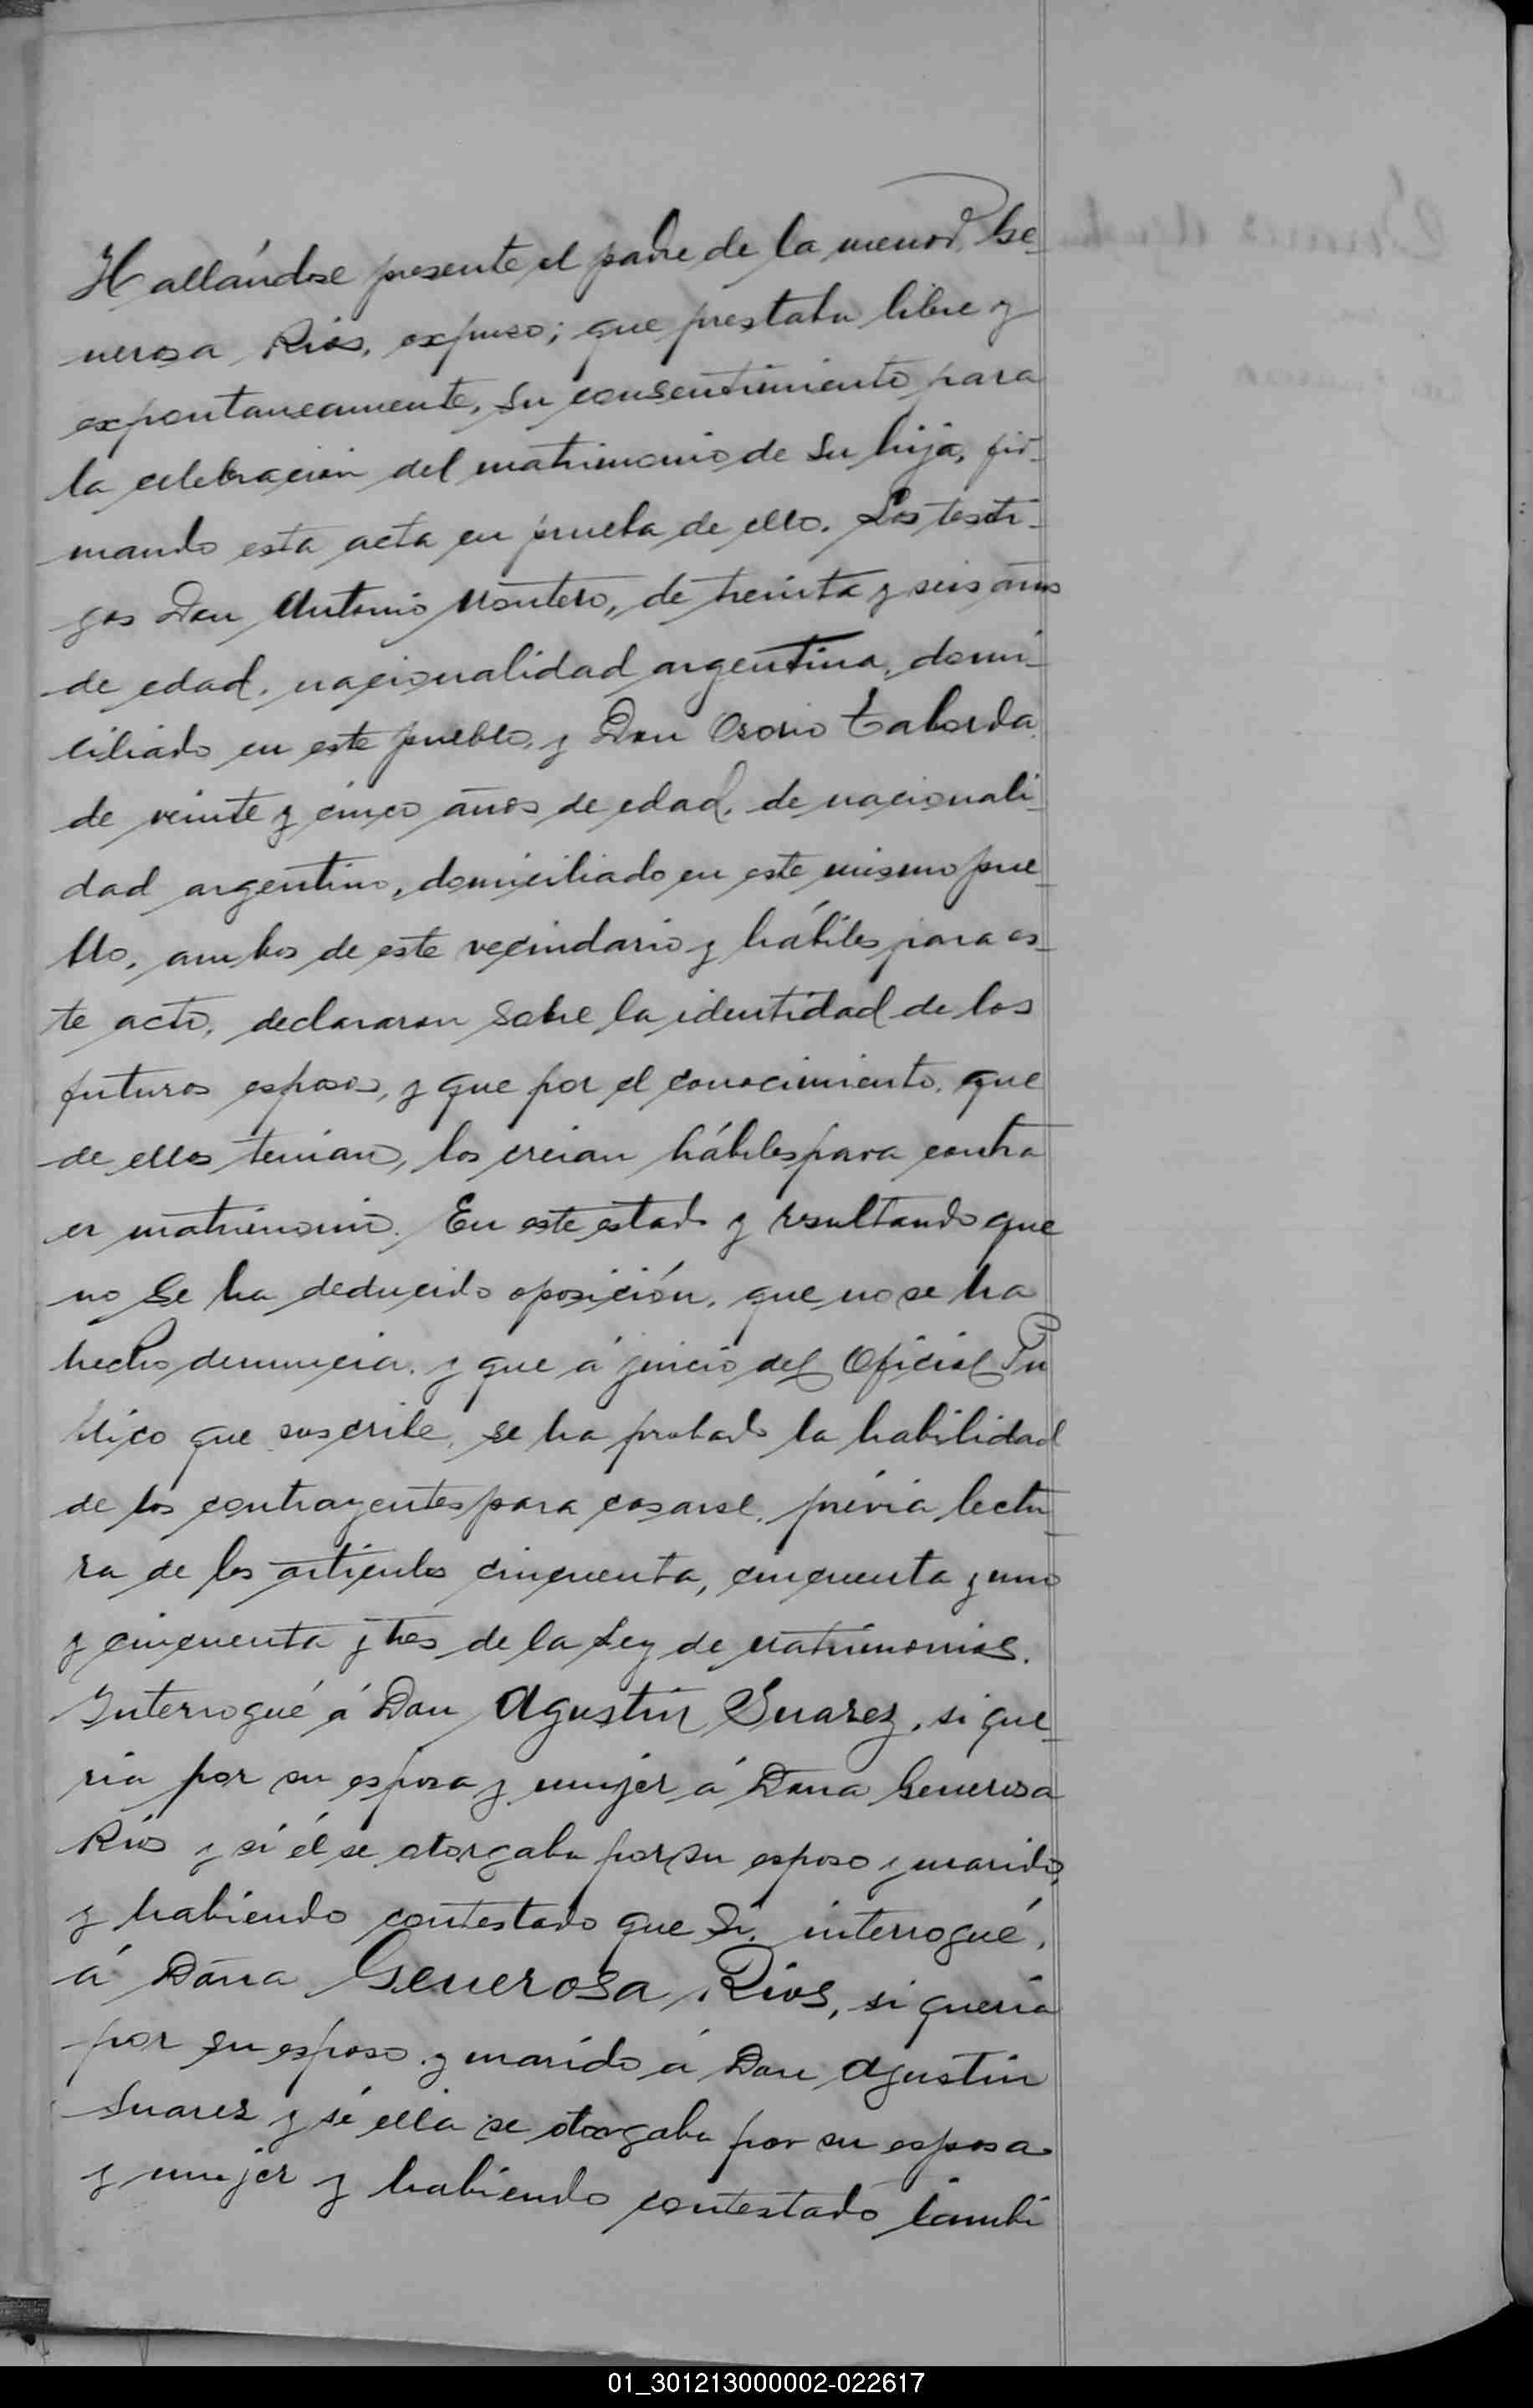 Hallándose presente el padre de la menor Ge-
nerosa Rios, expuso; que prestaba libre y
expontaneamente, su consentimiento para
la celebracion del matrimonio de su hija, fir-
mando esta acta en prueba de ello. Los testi-
gos Don Antonio Montero, de treinta y seis años
de edad, nacionalidad argentina, domi-
ciliado en este pueblo, y Don Osorio Taborda
de veinte y cinco años de edad, de nacionali-
dad argentino, domiciliado en este mismo pue-
blo, ambos de este vecindario y hábiles para es-
te acto, declararon sobre la identidad de los
futuros esposos, y que por el conocimiento, que
de ellos tenian, los creian hábiles para contra-
er matrimonio. En este estado y resultando que
no se ha deducido oposición, que no se ha
hecho denuncia, y que á juicio del Oficial Pu
blico que suscribe, se ha probado la habilidad
de los contrayentes para casarse, prévia lectu-
ra de los artículos cincuenta, cincuenta y uno
y cincuenta y tres de la Ley de Matrimonios.
Interrogué á Don Agustin Suarez, si que-
ria por su esposa y mujer á Doña Generosa
Rios y si él se otorgaba por su esposo y marido,
y habiendo contestado que Si, interrogué,
á Doña Generosa Rios, si queria
por su esposo y marido á Don Agustin
Suarez y si ella se otorgaba por su esposa
y mujer y habiendo contestado tambi
01_301213000002-022617